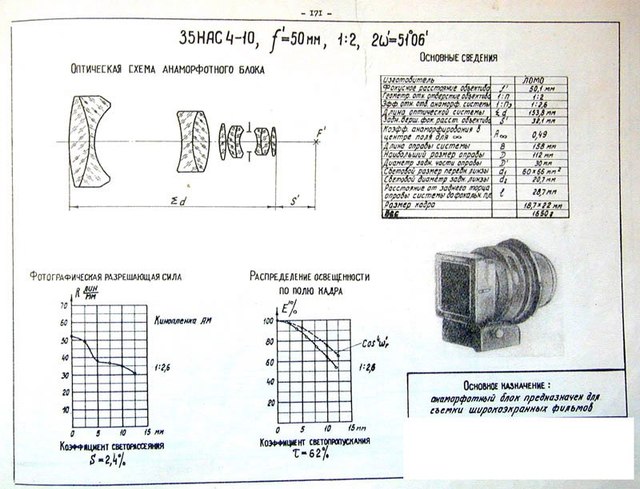 - 171 -
35НАС 4-10, f'=50мм, 1:2, 2ω'=51°06'
Оптическая схема анаморфотного блока
F'
Σd
S'
Основные сведения
Изготовитель ЛОМО
Фокусное расстояние объектива f' 50,1 мм
Геометр. отн. отверстие объектива 1:п 1:2
Эфф. отн. отв. анаморф. системы 1:Пэ 1:2,6
Длина оптической системы Σd 153,8 мм
Задн. верш. фок. расст. объектива S' 32,1 мм
Коэфф. анаморфирования в
центре поля для ∞ A∞ 0,49
Длина оправы системы B 158 мм
Наибольший размер оправы D 112 мм
Диаметр задн. части оправы D' 30 мм
Световой размер передн. линзы d₁ 60×66 мм²
Световой диаметр задн. линзы d₂ 20,7 мм
Расстояние от заднего торца
оправы системы до фокальн. пл. ℓ 28,7 мм
Размер кадра 18,7×22 мм
Вес 1650 г
Фотографическая разрешающая сила
R лин/мм
70
60
50
40
30
20
10
Кинопленка АМ
1:2,6
0 5 10 15 мм
Коэффициент светорассеяния
S=2,4%
Распределение освещенности
по полю кадра
E'%
100
80
60
40
20
Cos⁴ω'
1:2,6
0 5 10 15 мм
Коэффициент светопропускания
τ=62%
Основное назначение:
анаморфотный блок предназначен для
съемки широкоэкранных фильмов